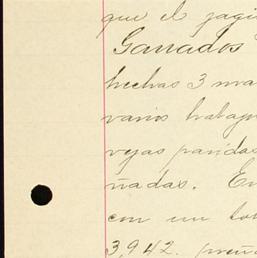 que el pagi
Ganados
hechas 3 ma
varios trabajo
vejas paridas
ñadas. En
con un to
3,942. preñ